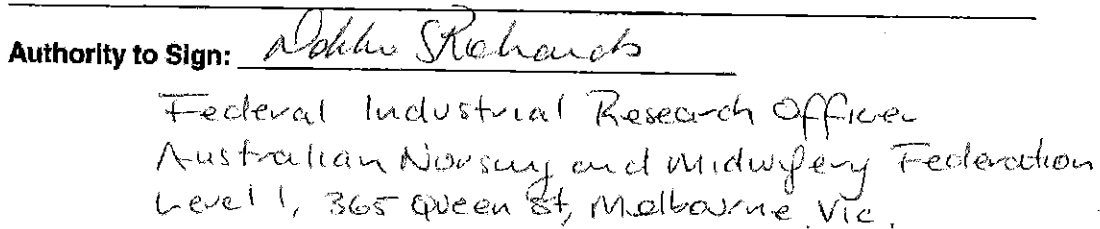 Authority to Sign: Debbie Richards
Federal Industrial Research Officer
Australian Nursing and Midwifery Federation
Level 1, 365 Queen St, Melbourne Vic.